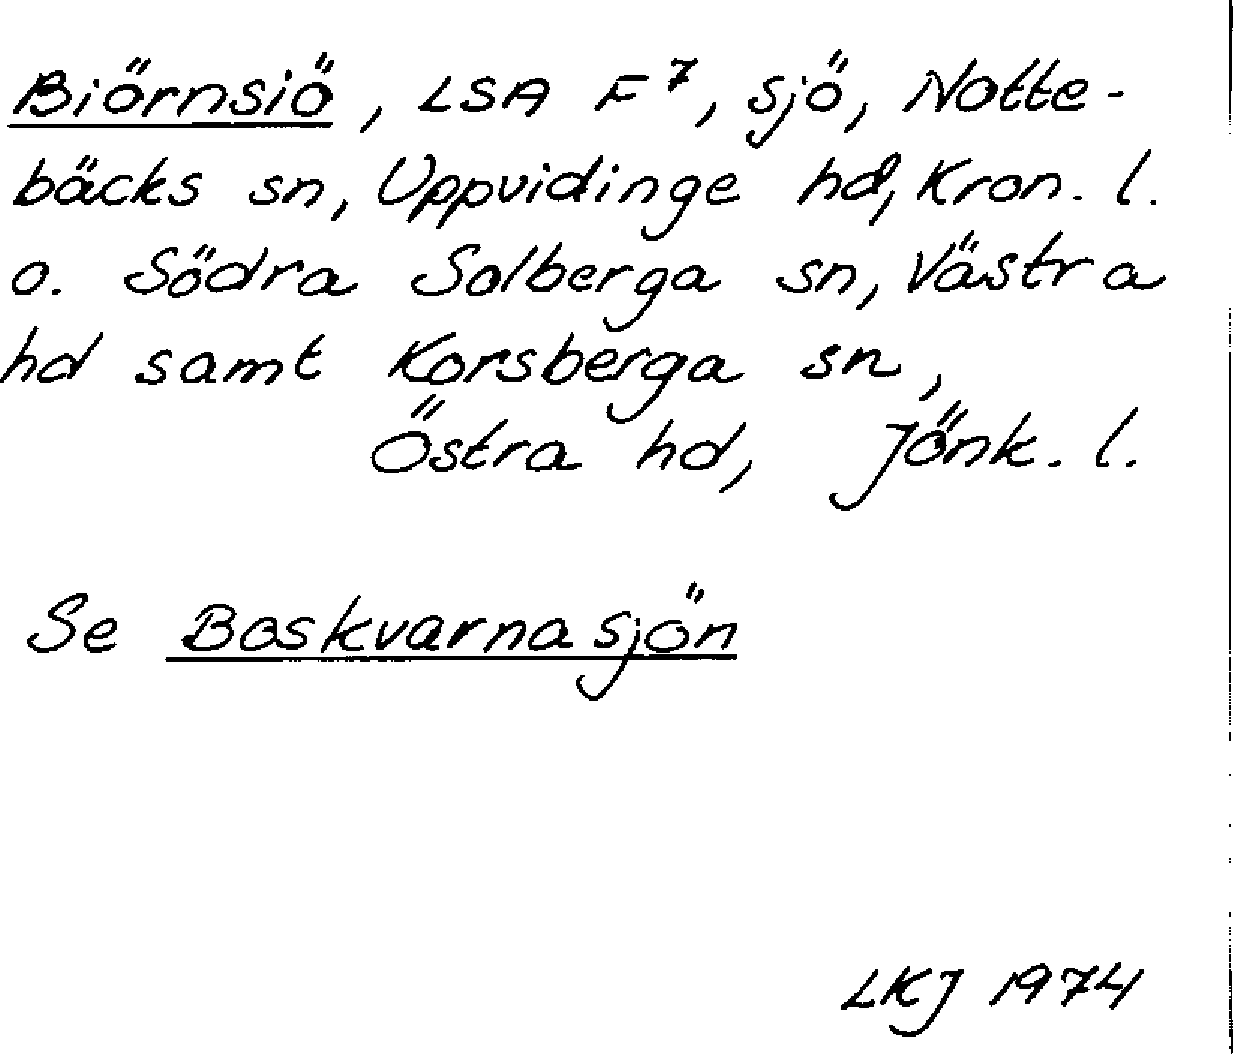 Biörnsiö, LSA F⁷, sjö, Notte-
bäcks sn, Uppvidinge hd, Kron. l.
o. Södra Solberga sn, Västra
hd samt Korsberga sn,
Östra hd, Jönk. l.
Se Boskvarnasjön
LKJ 1974